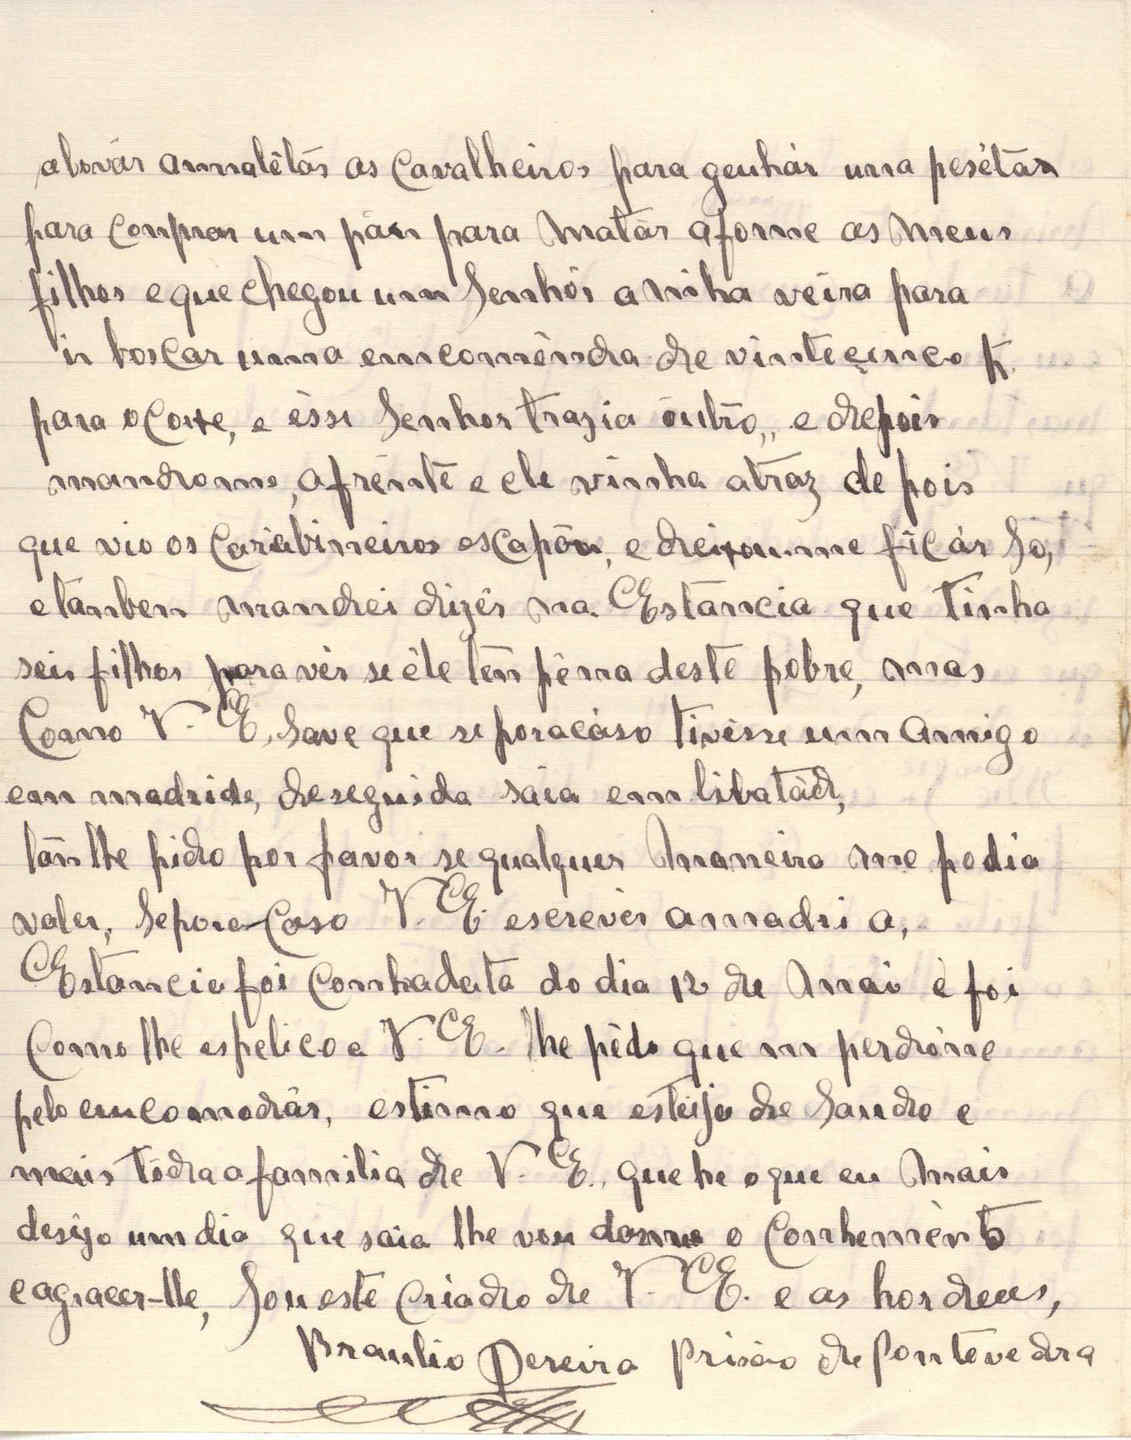 alovár amalêtás as Cavalheiros para genhár uma pesétas
para Conprar um pán para Matár afome as Meus
filhos e que chegou um Senhór a Minha veira para
ir boscar uma emcomênda de vinte cinco K.
para o Corte, e êsse Senhor trazia ôutrô,, e depois
mandrome, afrentê e ele vinha atraz de pois
que vio os Carabineiros escapôu, e deixoume ficár Só,
e tanben Mandei dizêr na Estancia que tinha
seis filhos para vêr se êle tên pêna deste pobre, mas
Como V. E. Save que se poracáso tivésse um Amigo
em madride, deseguida saia em libatád,
tân lhe pido por favor se qualquer Maneira Me podia
valer, Sepore-Caso V. E. escrevêr amadri a,
Estancia foi Comhadata do dia 12 de Mai è foi
Como lhe espelico e V. E. lhe pêdo que m perdône
pelo emcomodár, estimo que estêija de Saudo e
mais tôda a familia de V. E., que he o que eu Mais
desijo um dia que saia lhe vou darme o Conhemènto
e agracer-lle, Sou este Criado de V. E. e as hordens,
Braulio Pereira Prisão de Pontevedra